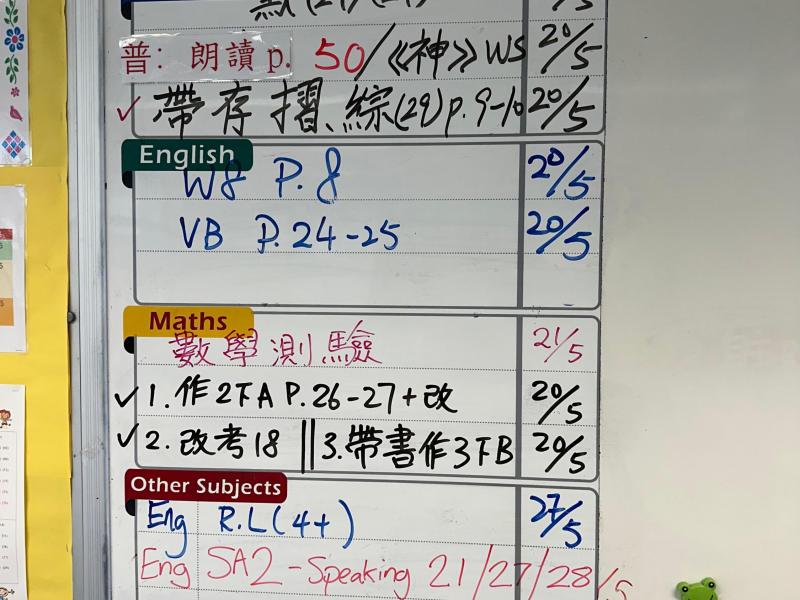 普：朗讀 p. 50/《神》WS 20/5
✓帶存摺、綜(29)p.9-10 20/5
English
WS P.8 20/5
VB P.24-25 20/5
Maths
數學測驗 21/5
✓1.作2下A P.26-27+改 20/5
✓2.改考18 ‖3.帶書作3下B 20/5
Other Subjects
Eng R.L(4+) 27/5
Eng SA2-Speaking 21/27/28/5